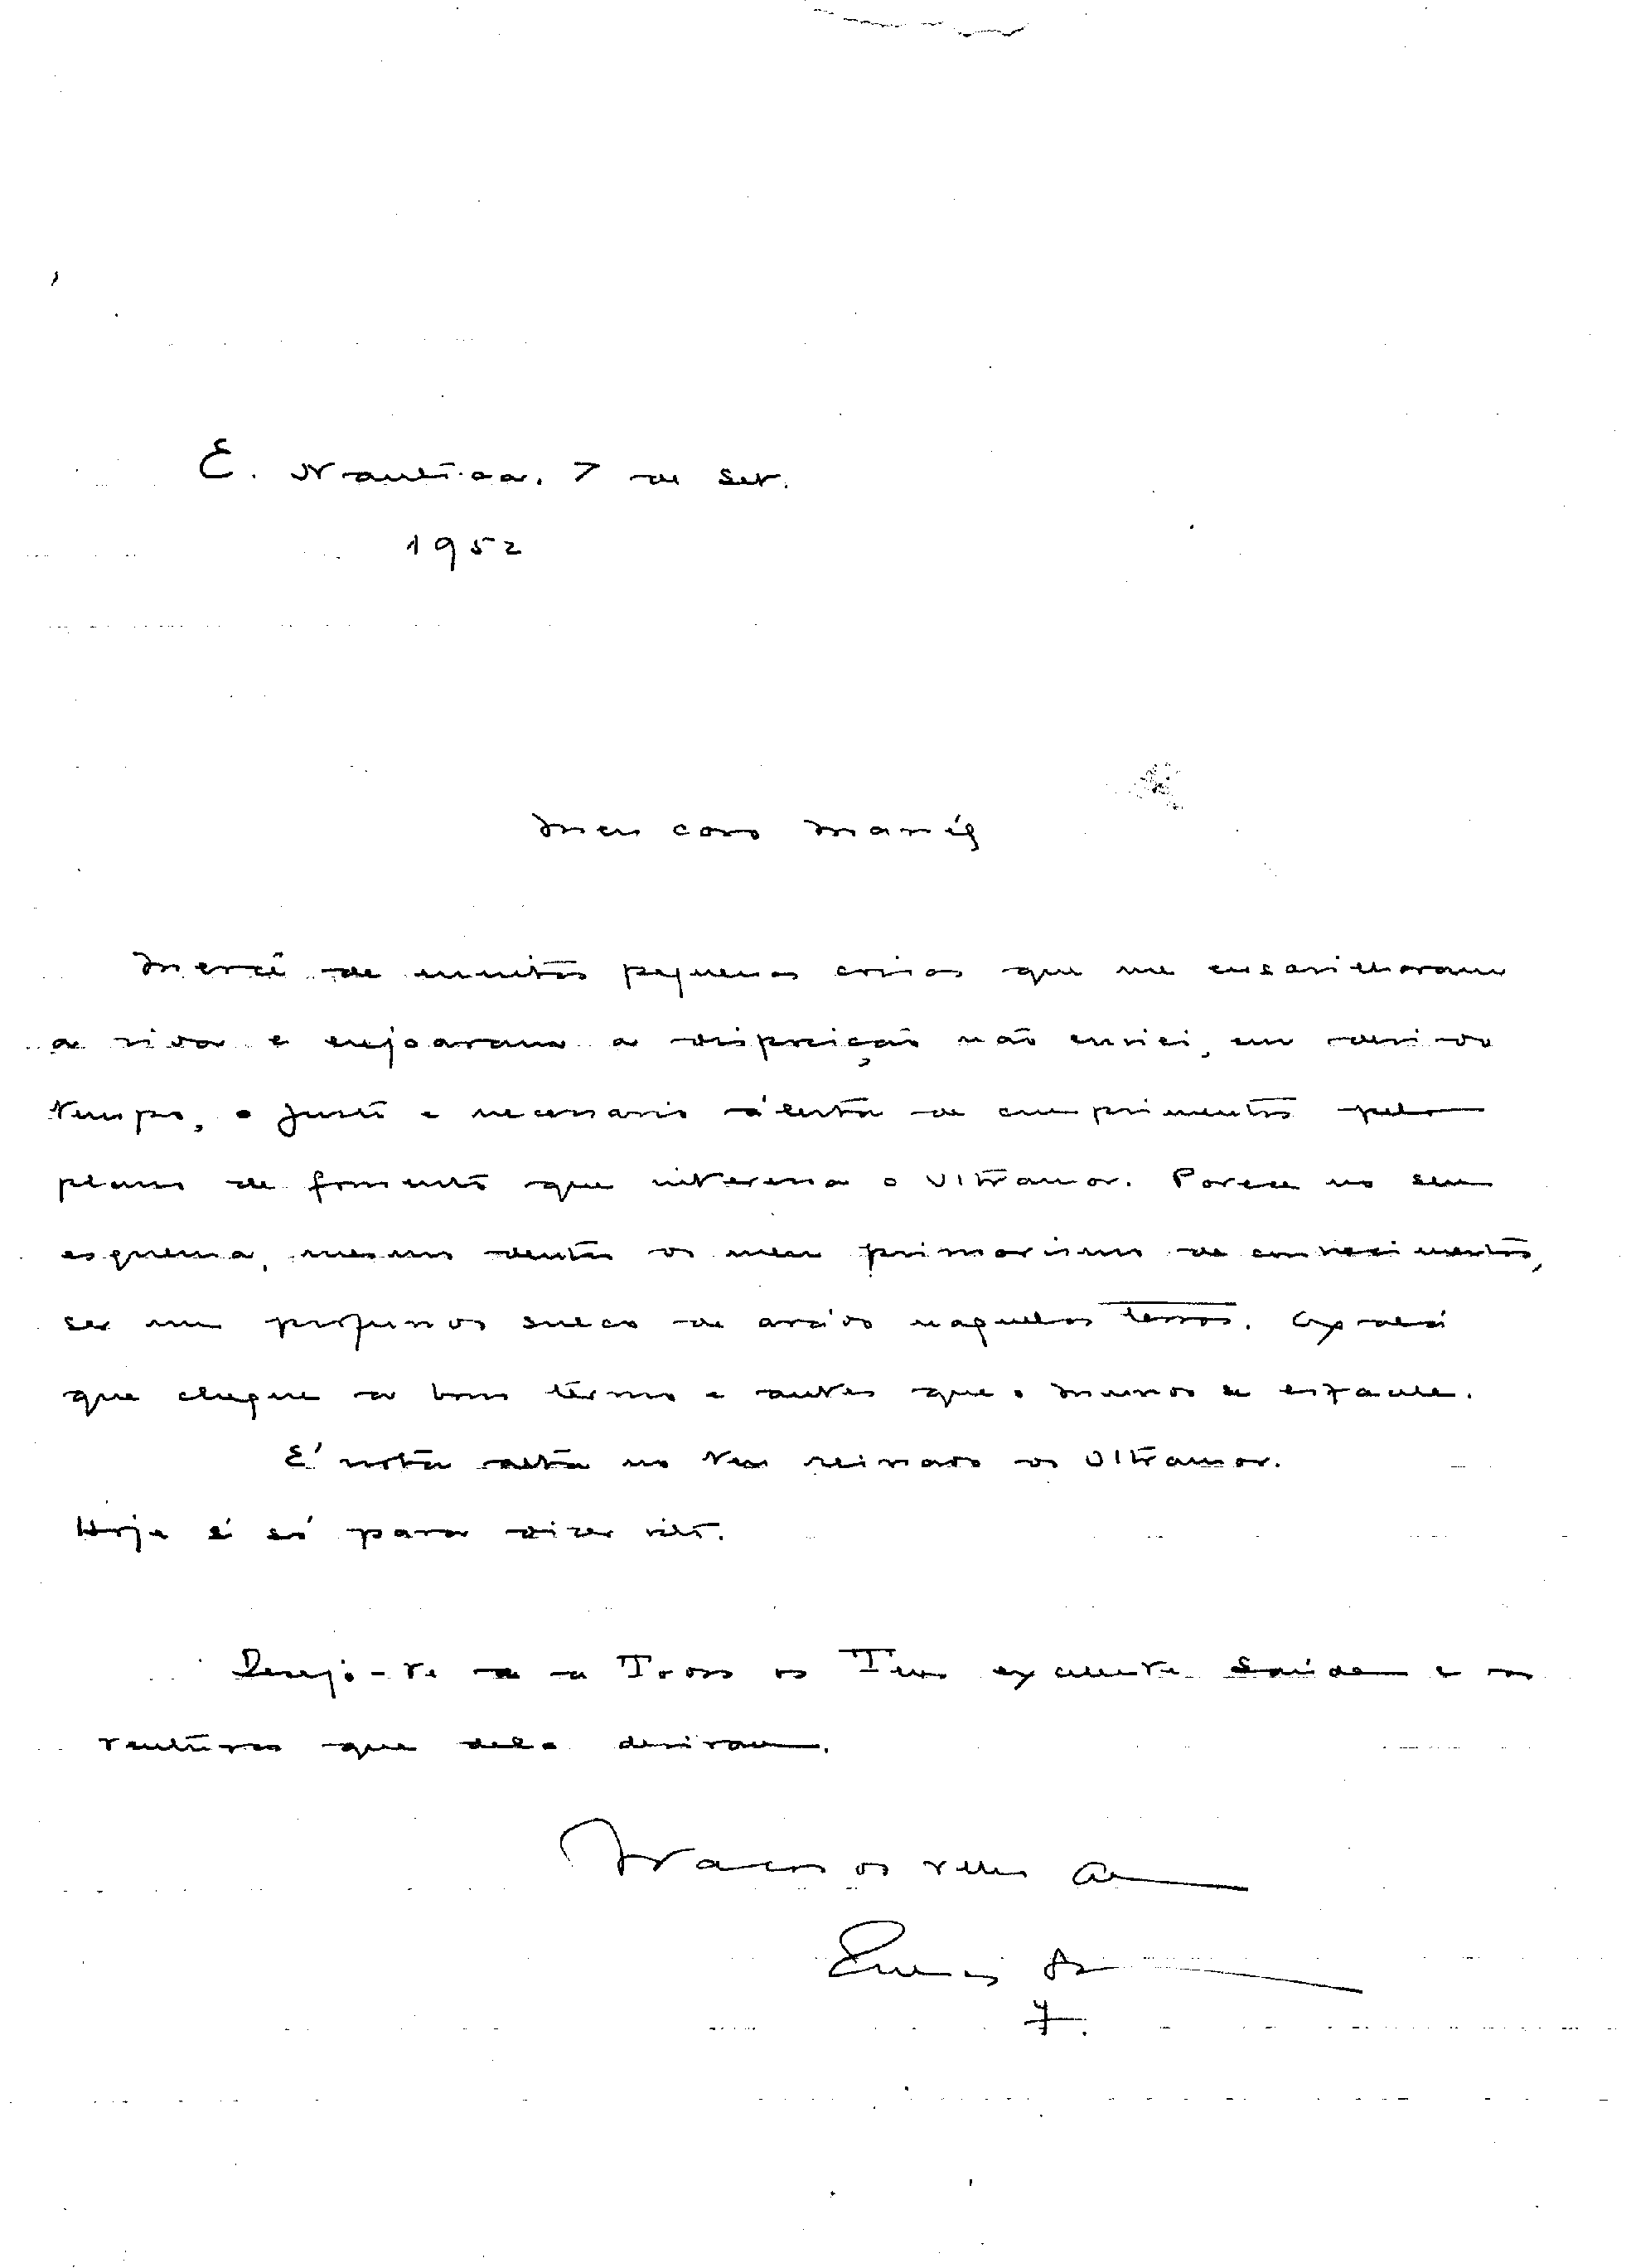 E. Nautica, 7 de Set.
1952
Meu caro Manél
Mercê de muitas pequenas coisas que me ensarilharam
a vida e enjoaram a disposição não enviei, em devido
tempo, o justo e necessario de cumprimentos pelo
plano de fomento que interessa o Ultramar. Parece no seu
esquema, mesmo dentro do meu primarismo de conhecimentos,
ser um profundo sulco de arado naquelas terras.
que chegue a bom têrmo e antes que o mundo se estale.
É nota alta no teu reinado do Ultramar.
Hoje é só para dizer isto.
Desejo-te e a Todos os Teus excelente saúde e as
venturas que dela derivam.
Abraços do teu